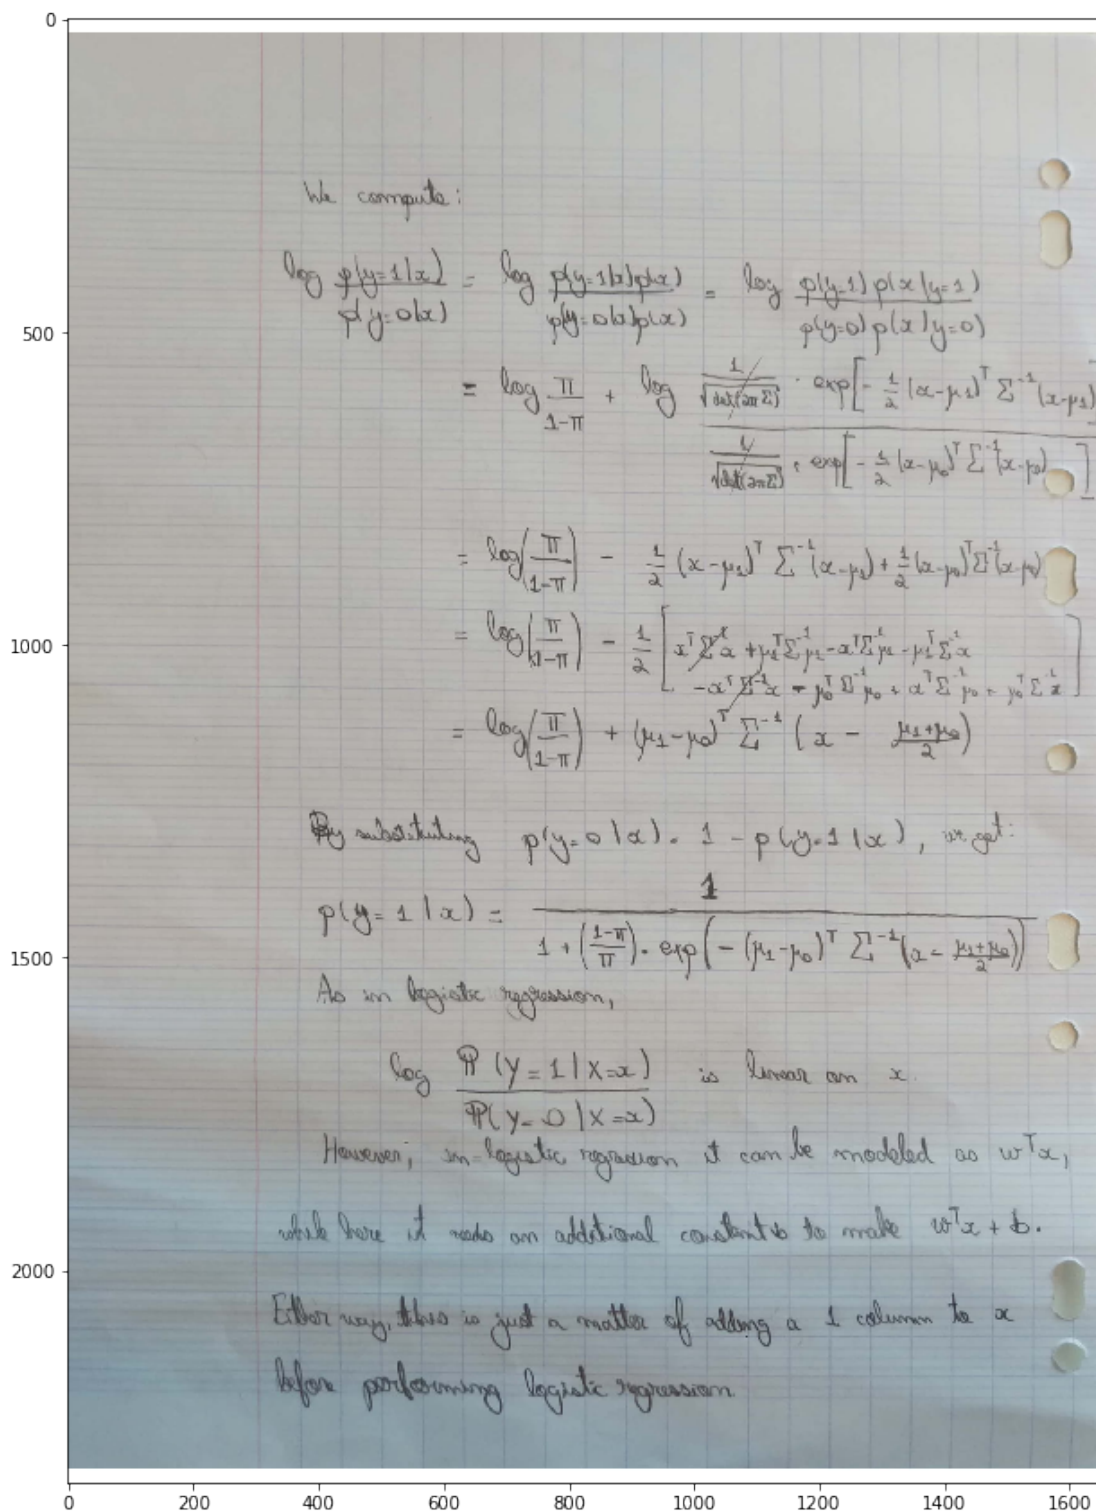 0
500
1000
1500
2000
We compute:
log p(y=1|x) / p(y=0|x) = log p(y=1|x)p(x) / p(y=0|x)p(x) = log p(y=1) p(x|y=1) / p(y=0) p(x|y=0)
= log π / 1-π + log 1/√det(2πΣ) · exp[-1/2 (x-μ1)^T Σ^-1 (x-μ1)] / 1/√det(2πΣ) · exp[-1/2 (x-μ0)^T Σ^-1 (x-μ0)]
= log(π / 1-π) - 1/2 (x-μ1)^T Σ^-1 (x-μ1) + 1/2 (x-μ0)^T Σ^-1 (x-μ0)
= log(π / 1-π) - 1/2 [x^T Σ^-1 x + μ1^T Σ^-1 μ1 - x^T Σ^-1 μ1 - μ1^T Σ^-1 x
- x^T Σ^-1 x - μ0^T Σ^-1 μ0 + x^T Σ^-1 μ0 + μ0^T Σ^-1 x]
= log(π / 1-π) + (μ1-μ0)^T Σ^-1 (x - μ1+μ0 / 2)
By substituting p(y=0|x) = 1 - p(y=1|x), we get:
p(y=1|x) = 1 / 1 + (1-π / π) · exp(-(μ1-μ0)^T Σ^-1 (x - μ1+μ0 / 2))
As in logistic regression,
log ℙ(Y=1|X=x) / ℙ(Y=0|X=x) is linear on x.
However, in logistic regression it can be modeled as w^T x,
while here it needs an additional constant b to make w^T x + b.
Either way, this is just a matter of adding a 1 column to x
before performing logistic regression
0 200 400 600 800 1000 1200 1400 1600